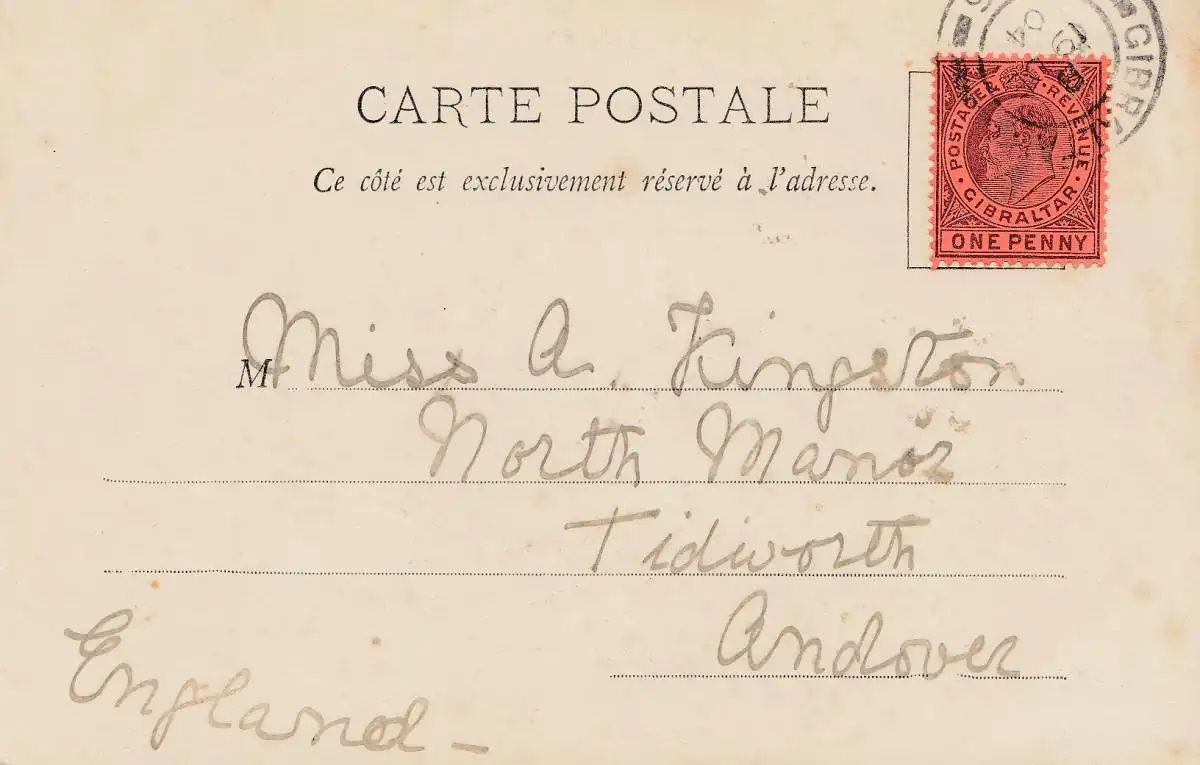 GIBR
04
CARTE POSTALE
Ce côté est exclusivement réservé à l'adresse.
POSTAGE & REVENUE
GIBRALTAR
ONE PENNY
M Miss A. Kingston
North Manor
Tidworth
Andover
England -